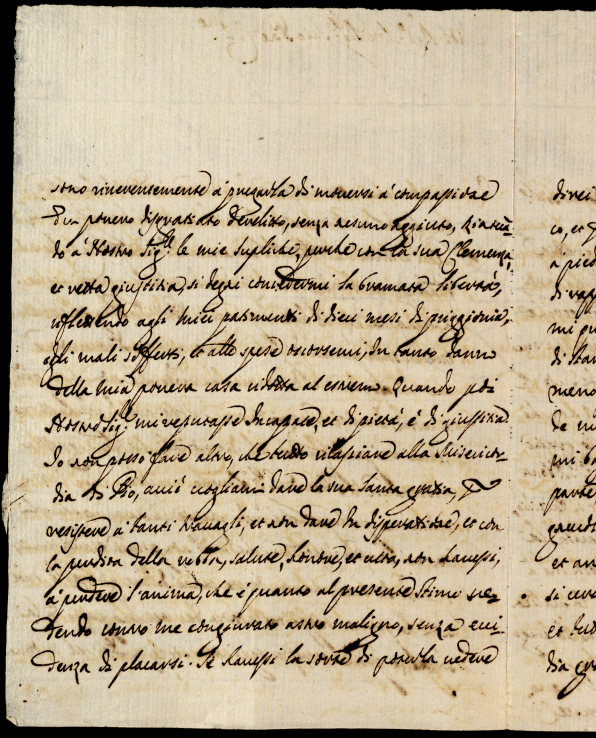 sono riverentemente à pregarla di moversi à compassione
d'un povero disgratiato derelitto, senza nesuno aggiuto,
do à Nostro Sig.re le mie supliche, perche con la sua Clemenza,
et retta giustitia, si degni concedermi la bramata libertà,
riflettendo agli miei patimenti di dieci mesi di priggionia,
agli mali sofferti, et alle spese in tanto danno
della mia povera casa ridotta al estremo. Quando poi
Nostro Sig.re mi reputasse incapace, et di pietà, è di giustitia
Io non posso fare altro, che tutto rilassiare alla Misericor-
dia di Dio, acciò vogliami dare la sua santa gratia,
resistere a tanti travagli, et non dare in disperatione, et con
la perdita della robba, salute, honore, et vita, non havessi,
à perdere l'anima, che è quanto al presente stimo ve-
dendo contro me congiurato astro maligno, senza evi-
denza di placarsi. Se havessi la sorte di poterla vedere
direi
co, et
a pied
di rap
mi
di star
meno
de
mi
parte
et
si
et
dia